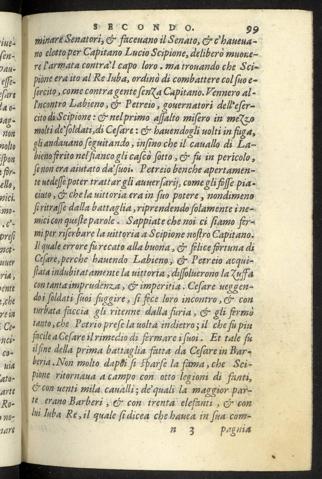 SECONDO. 99
minare Senatori, & facevano il Senato, & c'havea-
no eletto per Capitano Lucio Scipione, deliberò muove-
re l'armata contra'l capo loro. ma trovando che Sci-
pione era ito al Re Iuba, ordinò di combattere col suo e-
sercito, come contra gente senza Capitano. Vennero al-
l'incontro Labieno, & Petreio, governatori dell'eser-
cito di Scipione: & nel primo assalto misero in mezzo
molti de' soldati, di Cesare: & havendogli volti in fuga,
gli andavano seguitando, insino che il cavallo di La-
bieno ferito nel fianco gli cascò sotto, & fu in pericolo,
se non era aiutato da' suoi. Petreio benche apertamen-
te vedesse poter trattar gli avversarij, come gli fosse pia-
ciuto, & che la vittoria era in suo potere, nondimeno
si ritrasse dalla battaglia, riprendendo solamente i ne-
mici con queste parole. Sappiate che noi ci siamo fer-
mi per riserbare la vittoria a Scipione nostro Capitano.
Il quale errore fu recato alla buona, & felice fortuna di
Cesare, perche havendo Labieno, & Petreio acqui-
stata indubitatamente la vittoria, dissolverono la zuffa
con tanta imprudenza, & imperitia. Cesare veggen-
do i soldati suoi fuggire, si fece loro incontro, & con
turbata faccia gli ritenne dalla furia, & gli fermò
tanto, che Petrio prese la volta indietro; il che fu piu
facile a Cesare il rimedio di fermare i suoi. Et tale fu
il fine della prima battaglia fatta da Cesare in Bar-
beria. Non molto dapoi si sparse la fama, che Sci-
pione ritornava a campo con otto legioni di fanti,
& con venti mila cavalli; de' quali la maggior par-
te erano Barberi, & con trenta elefanti, & con
lui Iuba Re, il quale si dicea che havea in sua com-
n 3 pagnia